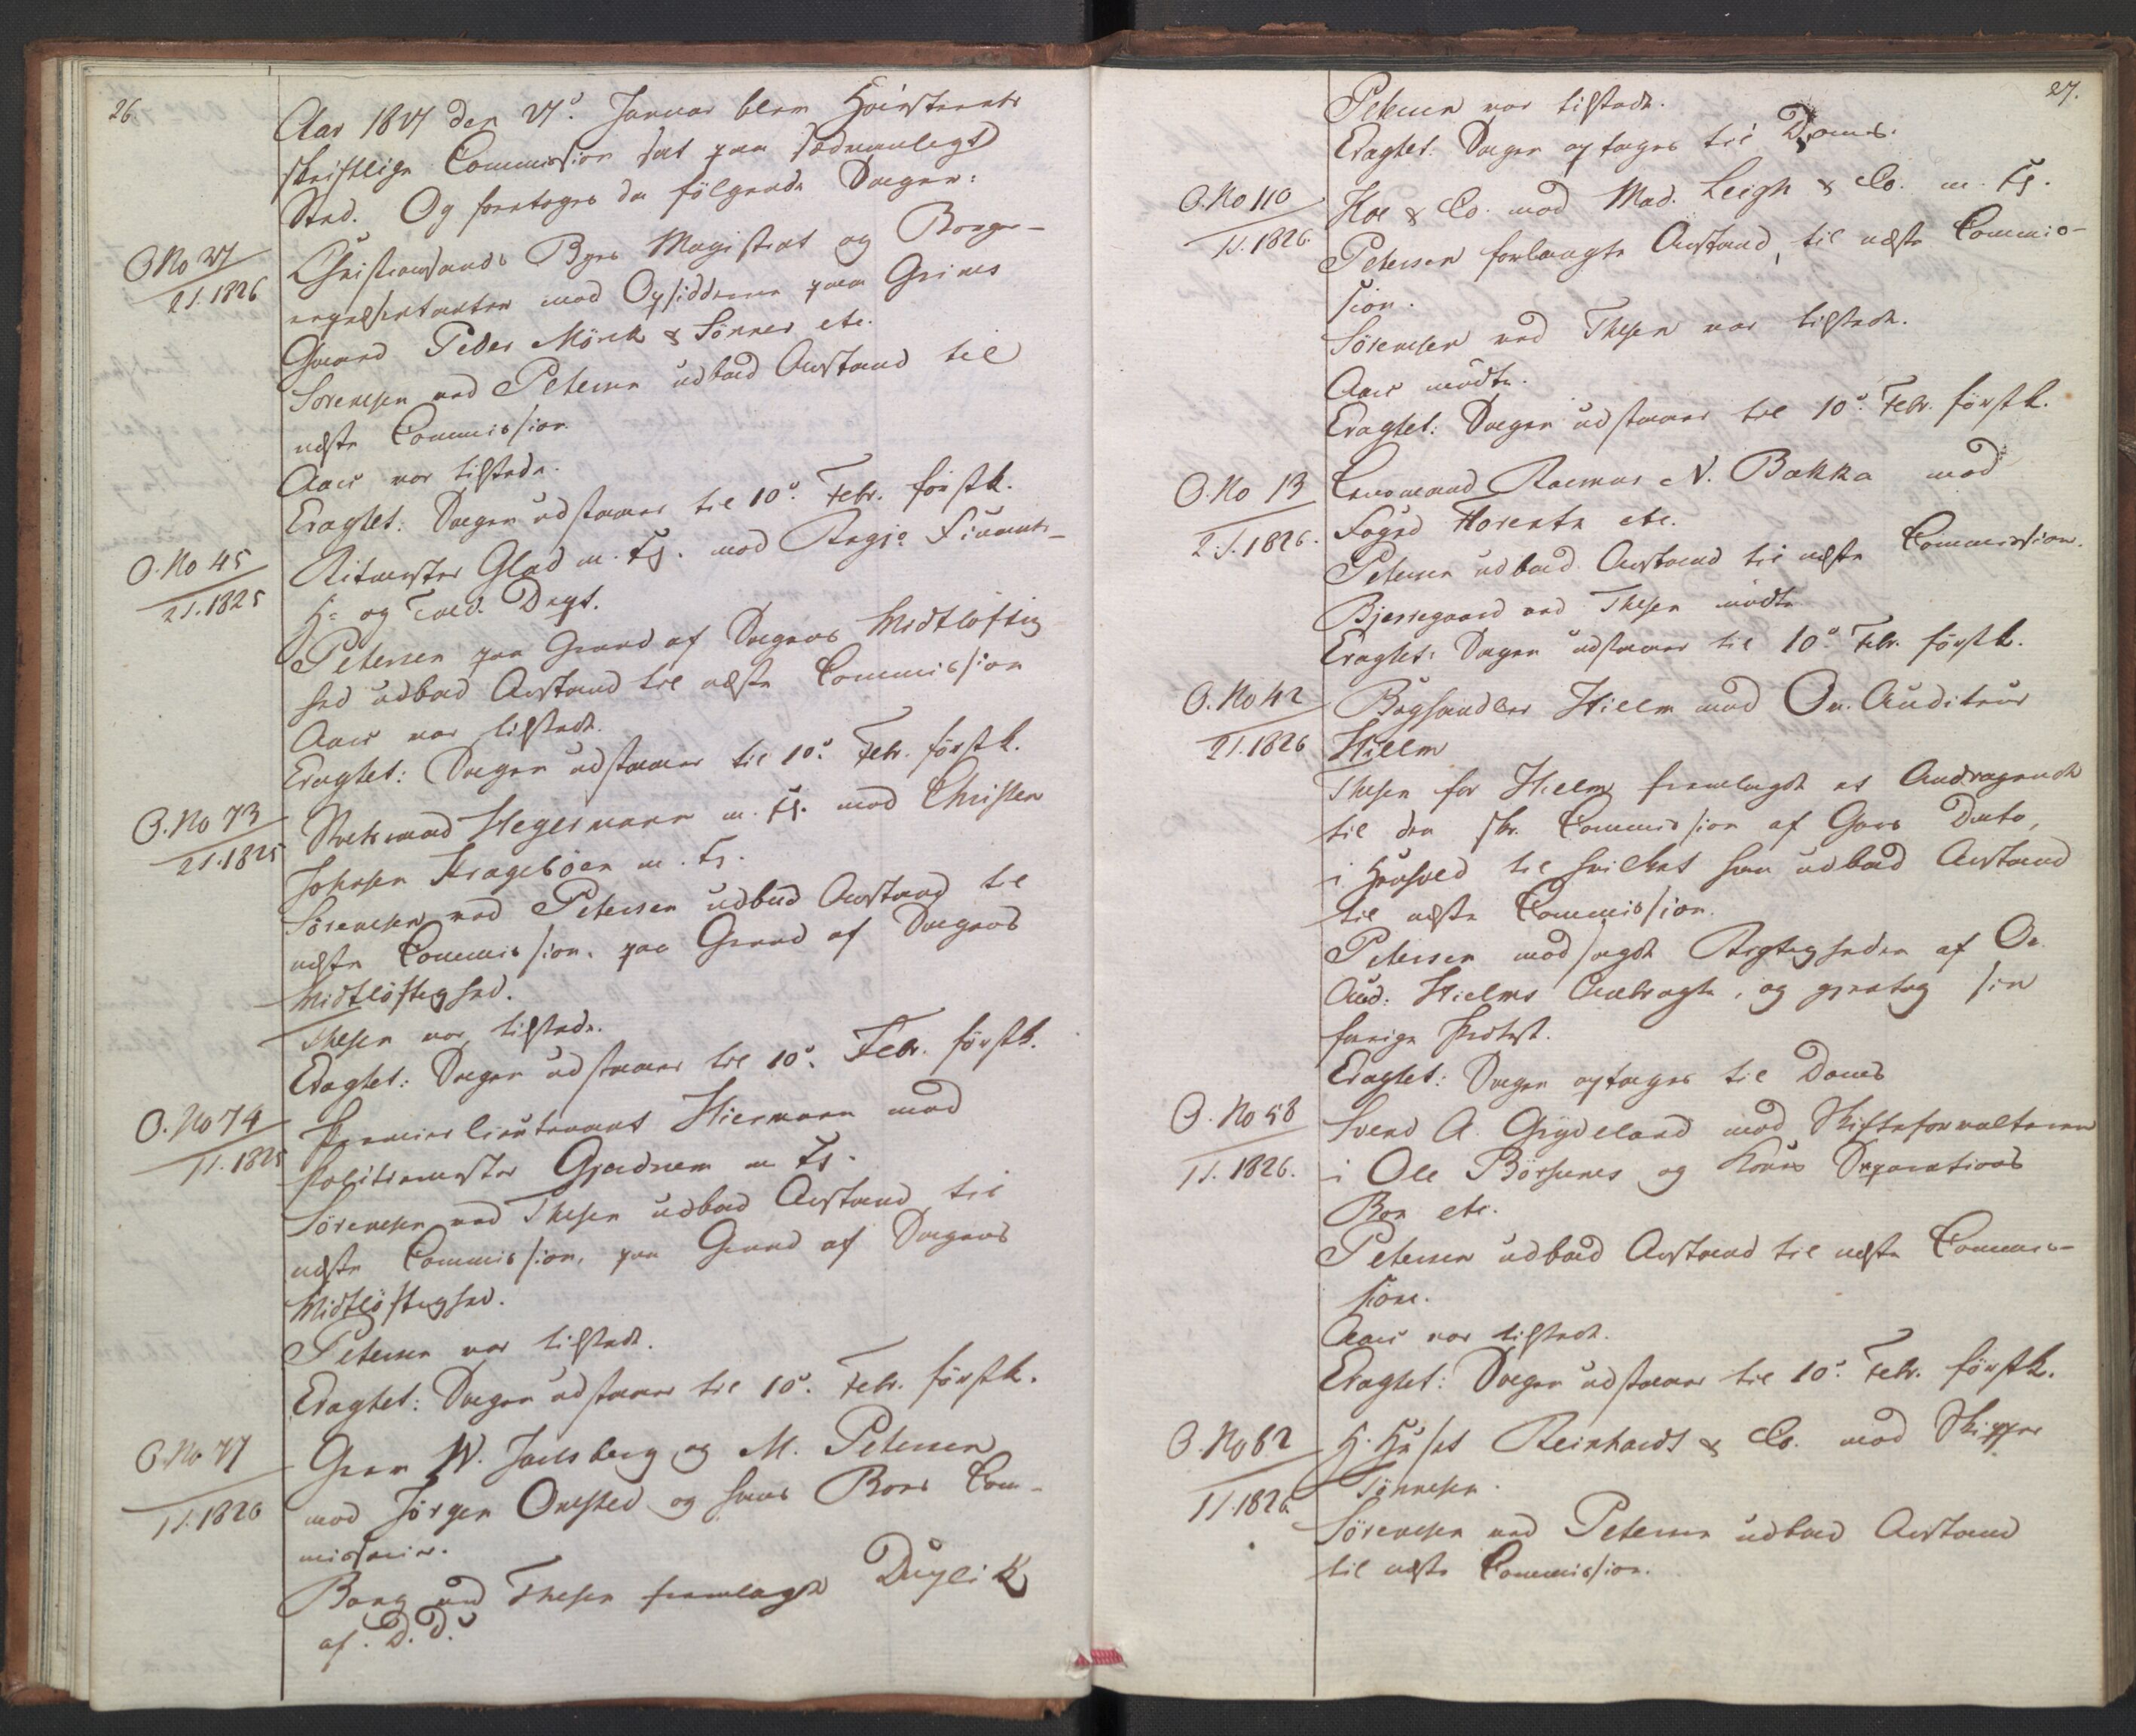 26
Aar 1827 den 27d. Januar blev Høiesterets
skriftlige Commission sat paa sædvanligt
Sted. Og foretoges da følgende Sager:
O. No 27
2 S. 1826
Christiansands Byes Magistrat og Borger-
repræsentanter mod Opsidderne paa Grims
Gaard Peder Mörch & Sönner etc.
Sörensen ved Petersen udbad Anstand til
næste Commission.
Aars var tilstede.
Eragtet: Sagen udstaaer til 10d. Febr. förstk.
O. No 45
2 S. 1825
Ritmester Glad m. fl. mod Regje Finants-
H: og Told. Dept.
Petersen paa Grund af Sagens Vidtlöftig
hed udbad Anstand til næste Commission
Aars var tilstede.
Eragtet: Sagen udstaaer til 10d. Febr. förstk.
O. No 73
2 S. 1825
Hegermann m. fl. mod Christen
Johnsen Krageböen m. fl.
Sörensen ved Petersen udbad Anstand til
næste Commission, paa Grund af Sagens
Vidtlöftighed.
Thesen var tilstede.
Eragtet: Sagen udstaaer til 10d. Febr. förstk.
O. No 74
1 S. 1825
Premierlieutenant Hiermann mod
Politiemester Gjerdrum m fl.
Sörensen ved Thesen udbad Anstand til
næste Commission, paa Grund af Sagens
Vidtlöftighed.
Petersen var tilstede.
Eragtet: Sagen udstaaer til 10d. Febr. förstk.
O. No 77
1 S. 1826
Grev W. Jarlsberg og M. Petersen
mod Jörgen Onsted og hans Boes Com-
missarier.
Borg ved Thesen fremlagde Duplik
af. D. D.
27.
Petersen var tilstede.
Eragtet. Sagen optages til Doms.
O. No 110
1 S. 1826.
Koe & Co. mod Mad. Leigh & Co. m. fl.
Petersen forlangte Anstand til næste Commis-
sion.
Sörensen ved Thesen var tilstede.
Aars mödte.
Eragtet: Sagen udstaaer til 10d. Febr. förstk.
O. No 13
2 S. 1826.
Rasmus N. Bakka mod
Foged Florentz etc.
Petersen udbad Anstand til næste Commission.
Bjerregaard ved Thesen mödte
Eragtet: Sagen udstaaer til 10d. Febr. förstk.
O. No 42
2 S. 1826
Boghandler Hielm mod Ov. Auditeur
Hielm
Thesen for Hielm fremlagde et Andragende
til den skr. Commission af Gaars Dato,
i Henhold til hvilket han udbad Anstand
til næste Commission.
Petersen modsagde Rigtigheden af Ov.
Aud: Hielms Anbragte, og gjentog sin
forrige Protest.
Eragtet: Sagen optages til Doms
O. No 58
1 S. 1826.
Svend A. Gydeland mod Skifteforvalteren
i Ole Börsunds og Kones Separations
Boe etc.
Petersen udbad Anstand til næste Commis-
sion.
Aars var tilstede.
Eragtet: Sagen udstaaer til 10d. Febr. förstk.
O. No 62
1 S. 1826.
H. Huset Reinhardt & Co. mod Skipper
Tönnesen.
Sörensen ved Petersen udbad Anstand
til næste Commission.